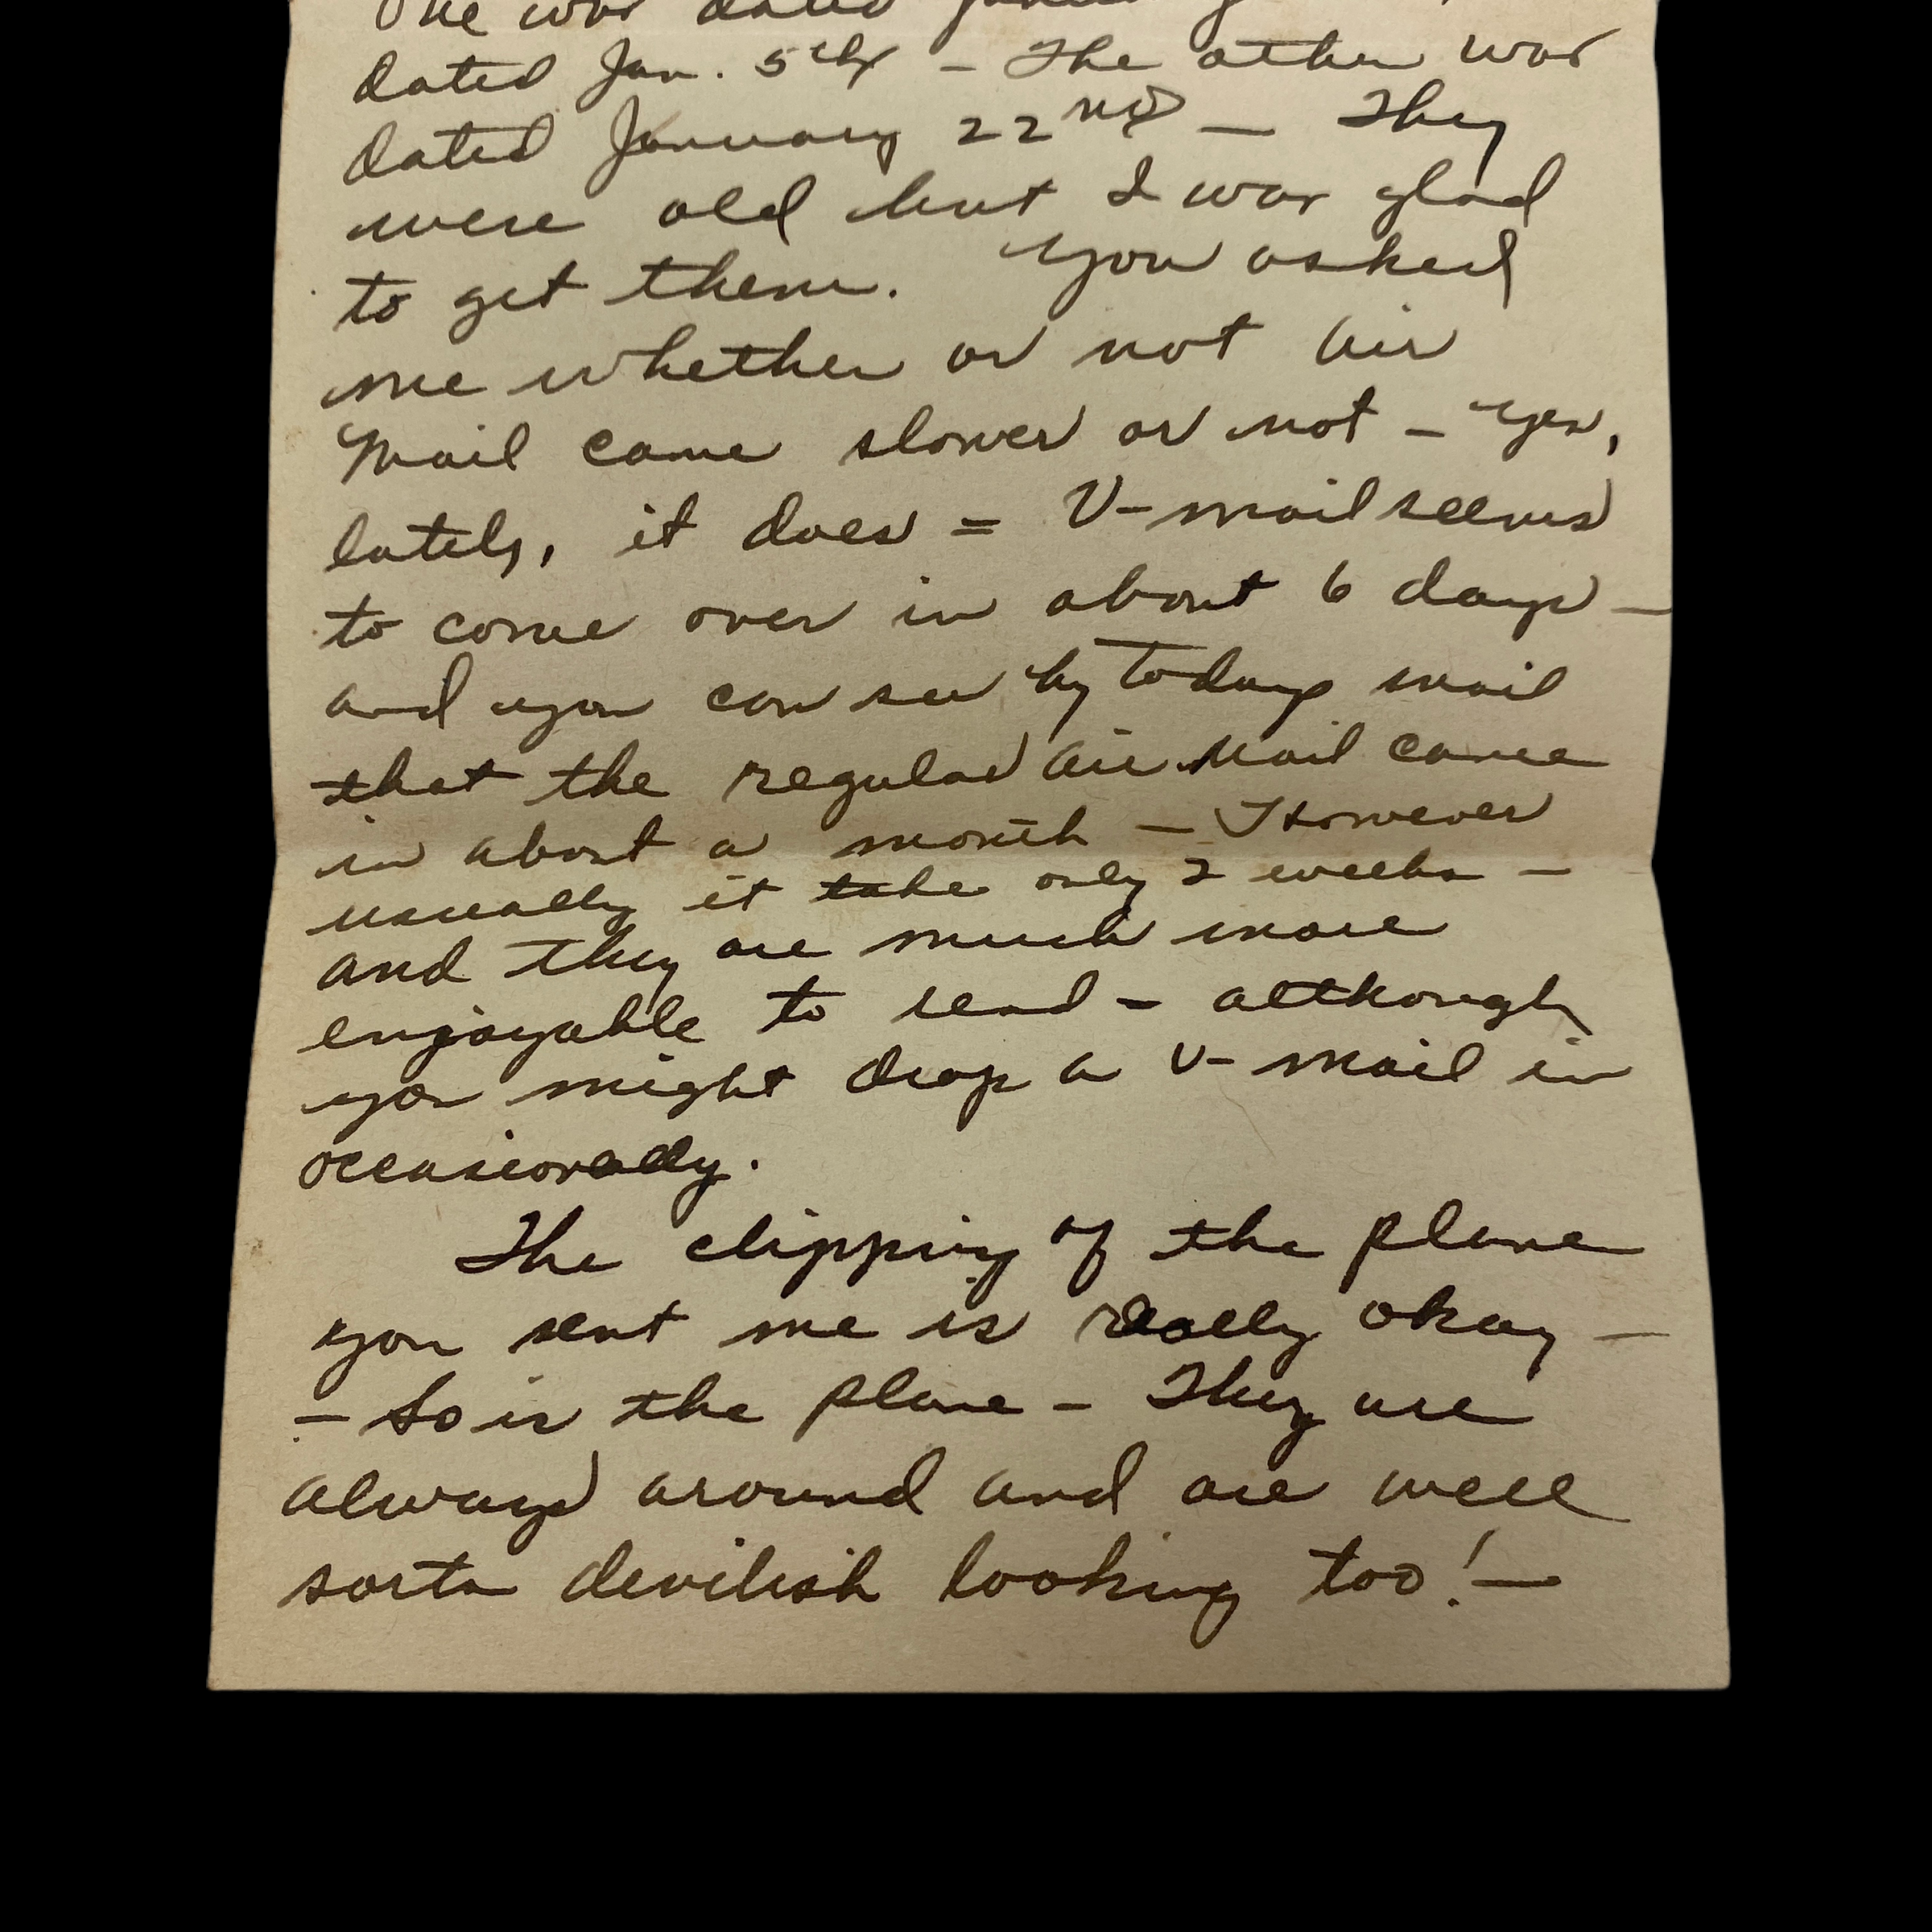 One was dated
dated Jan. 5th – The other was
dated January 22nd – They
were old but I was glad
to get them. You asked
me whether or not air
Mail came slower or not – Yes,
lately, it does = V-mail seems
to come over in about 6 days –
and you can see by todays mail
that the regular air Mail came
in about a month – However
usually it take only 2 weeks –
and they are much more
enjoyable to read – although
you might drop a V-mail in
occasionally.
The clipping of the plane
you sent me is really okay –
– So is the plane – They are
always around and are well
sorta devilish looking too! –